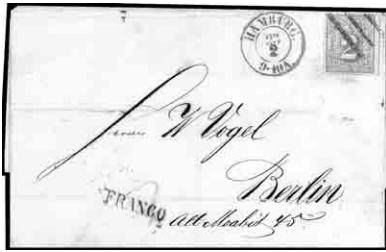 HAMBURG.
9-10A.
W Vogel
Berlin
FRANCO
Alt Moabit 45